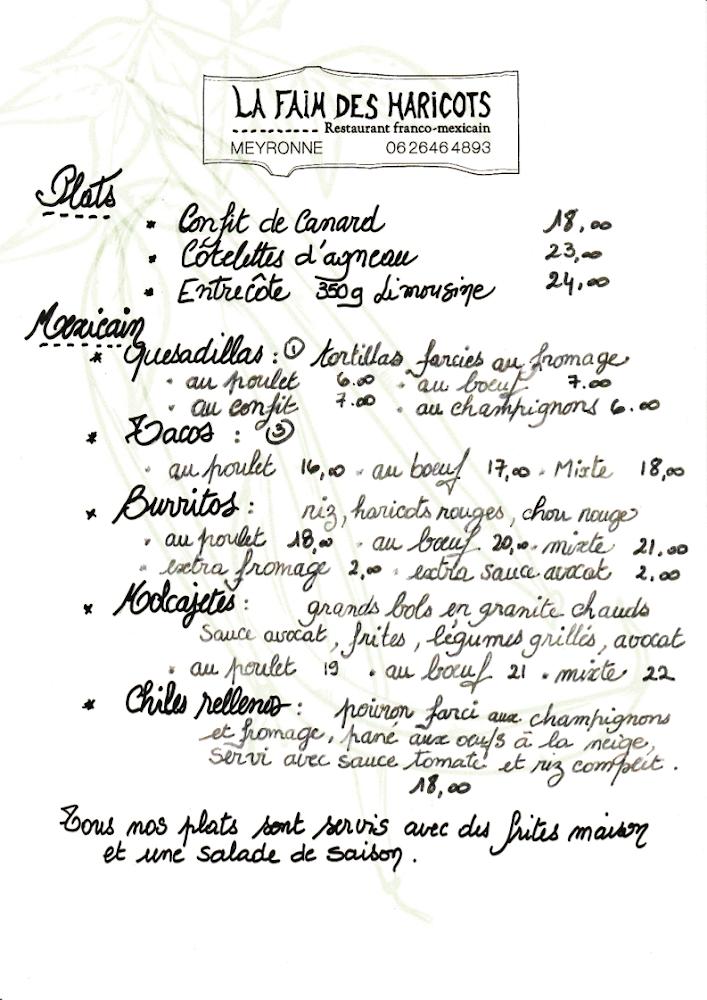 LA FAIM DES HARICOTS
Restaurant franco-mexicain
MEYRONNE 0626464893
Plats
* Confit de Canard 18,00
* Côtelettes d'agneau 23,00
* Entrecôte 350g Limousine 24,00
Mexicain
* Quesadillas : ① tortillas farcies au fromage
• au poulet 6.00 • au boeuf 7.00
• au confit 7.00 • au champignons 6.00
* Tacos : ③
• au poulet 16,00 • au boeuf 17,00 • Mixte 18,00
* Burritos : riz, haricots rouges, chou rouge
• au poulet 18,00 • au bœuf 20,00 • mixte 21.00
• extra fromage 2,00 • extra sauce avocat 2.00
* Molcajetes : grands bols en granite chauds
sauce avocat, frites, légumes grillés, avocat
• au poulet 19 • au bœuf 21 • mixte 22
* Chiles rellenos : poivron farci aux champignons
et fromage, pané aux oeufs à la neige,
servi avec sauce tomate et riz complet.
18,00
Tous nos plats sont servis avec des frites maison
et une salade de saison.